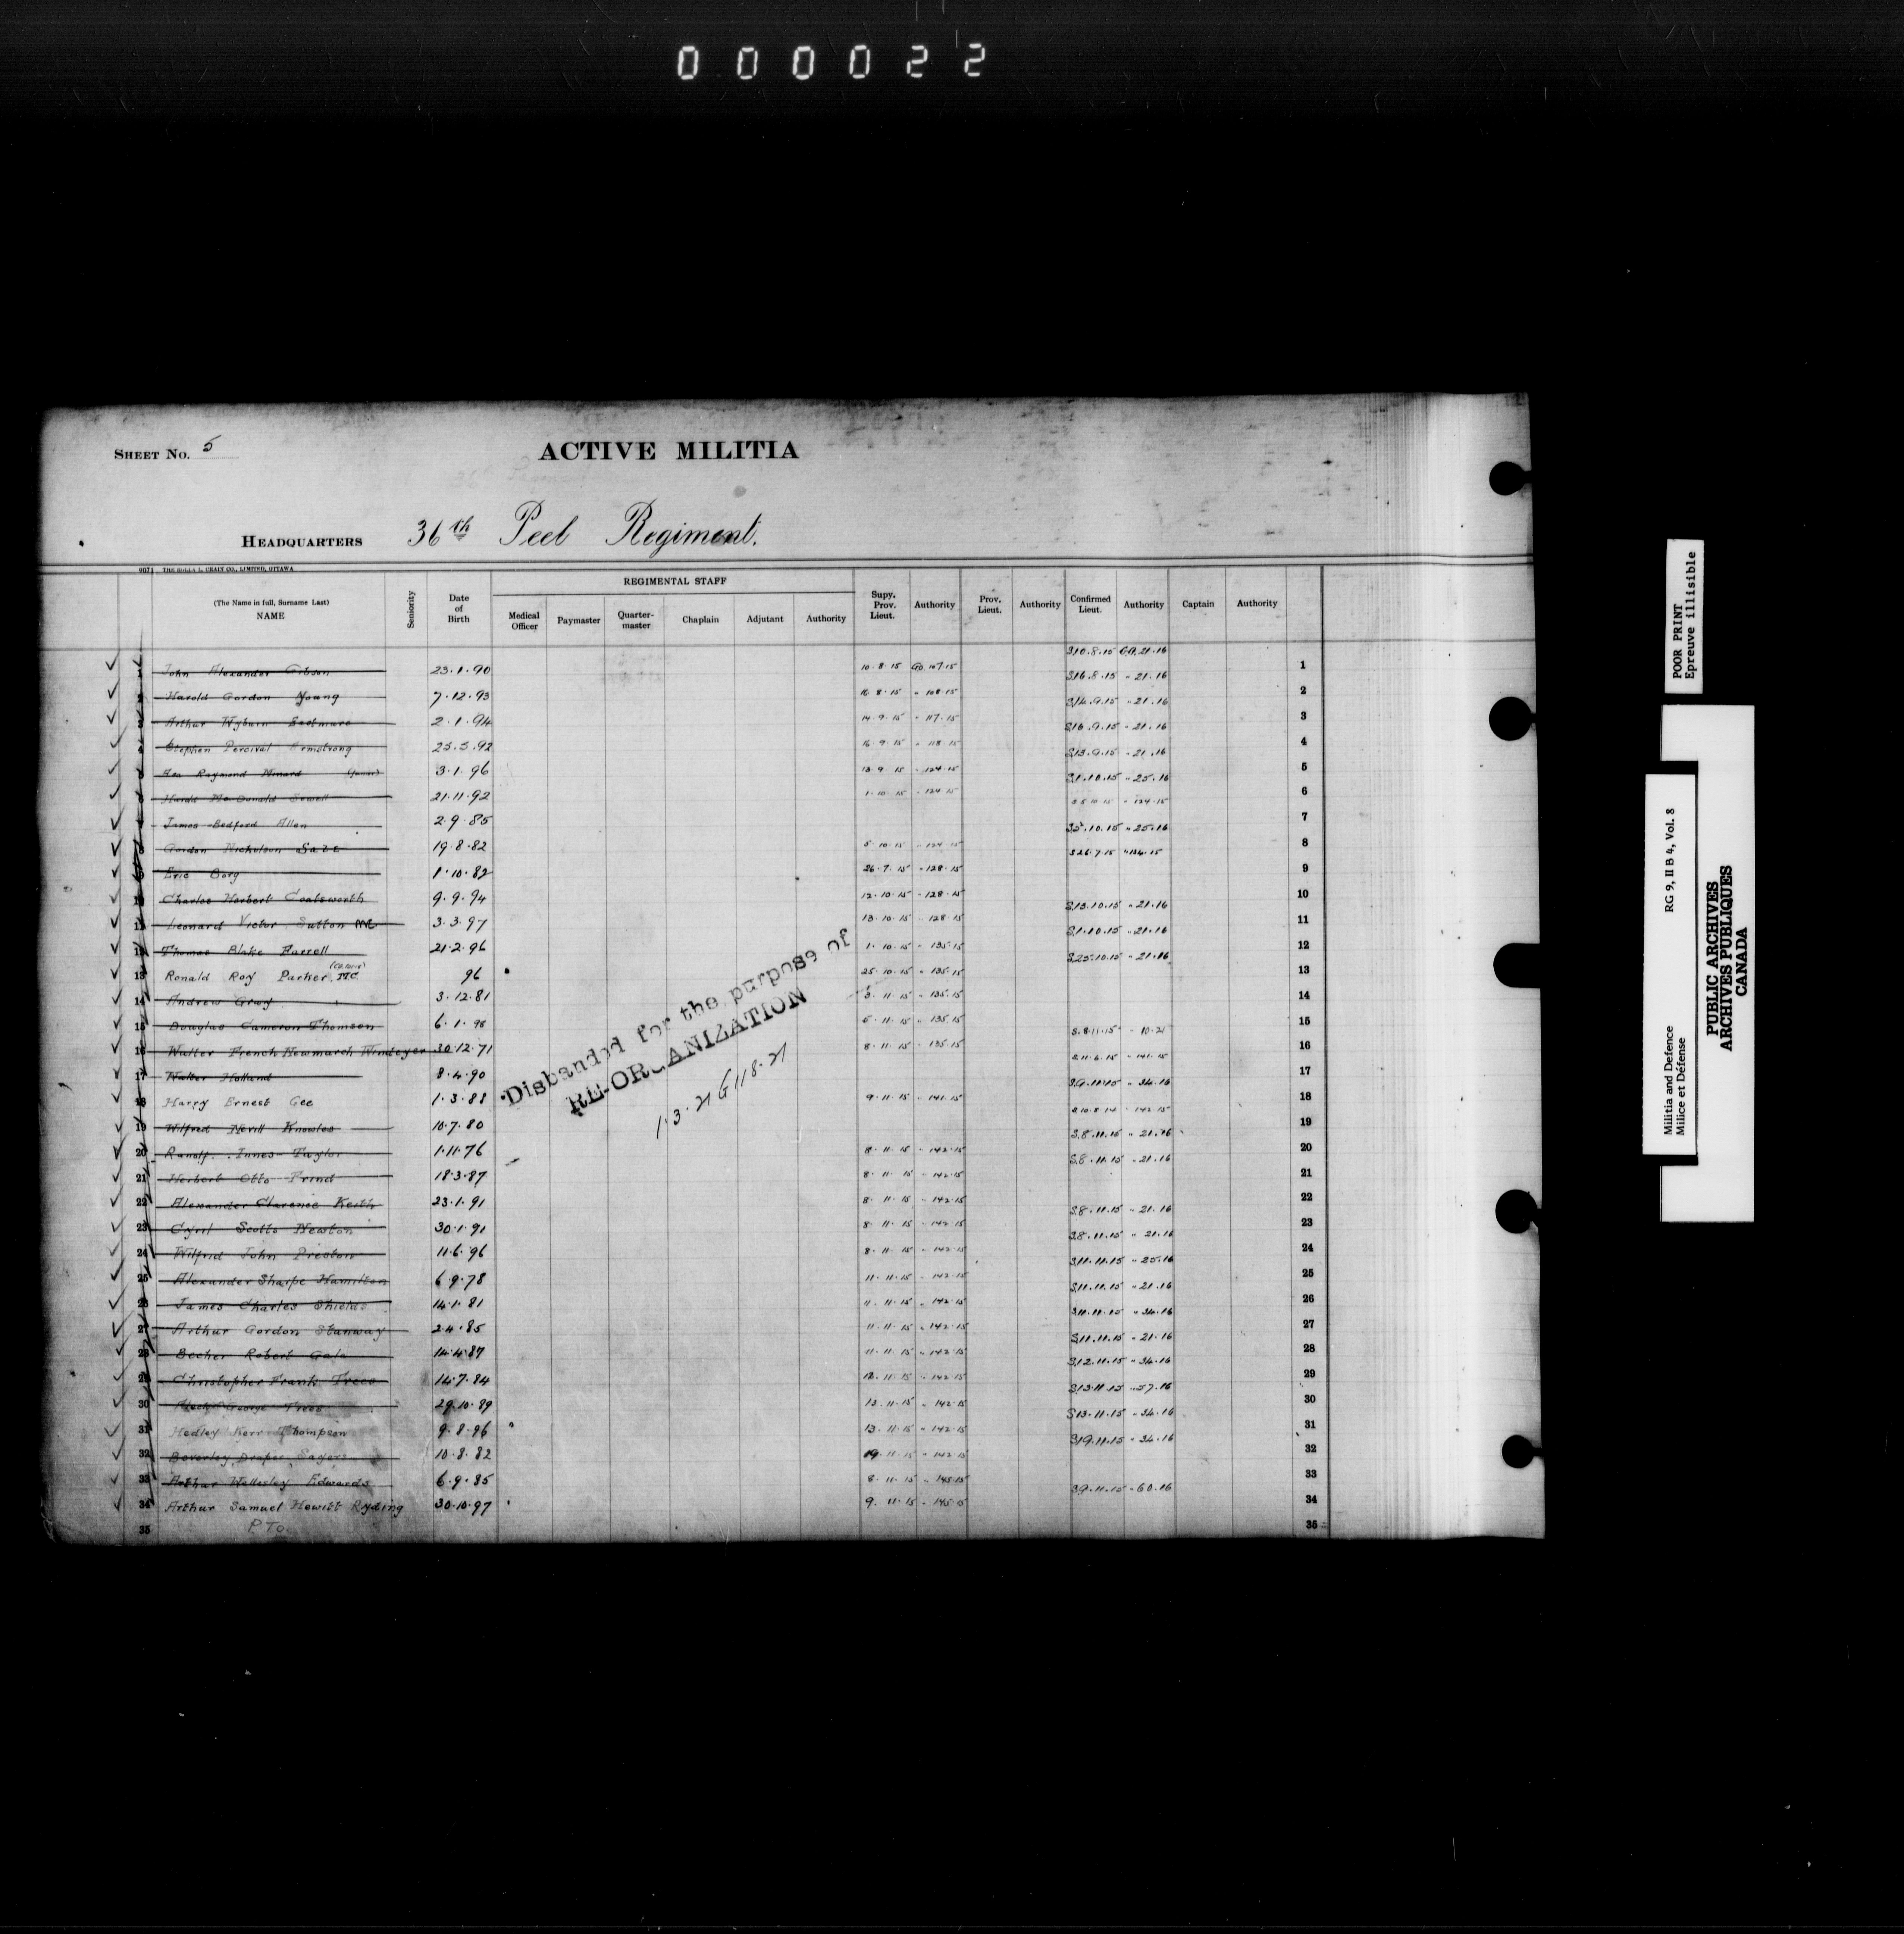 000022
SHEET No. 5
ACTIVE MILITIA
HEADQUARTERS 36th Peel Regiment.
9071 THE ROLLA L. CRAIN CO., LIMITED, OTTAWA
(The Name in full, Surname Last) NAME Seniority Date of Birth REGIMENTAL STAFF Medical Officer Paymaster Quarter-master Chaplain Adjutant Authority Supy. Prov. Lieut. Authority Prov. Lieut. Authority Confirmed Lieut. Authority Captain Authority
1 John Alexander Gibson 23.1.90 10.8.15 GO.107.15 S10.8.15 GO.21.16 1
2 Harold Gordon Young 7.12.93 16.8.15 " 108.15 S16.8.15 " 21.16 2
3 Arthur Wyburn 2.1.94 14.9.15 " 117.15 S14.9.15 " 21.16 3
4 Stephen Percival Armstrong 25.5.92 16.9.15 " 118.15 S16.9.15 " 21.16 4
5 Raymond Minard (Junior) 3.1.96 13.9.15 " 124.15 S13.9.15 " 21.16 5
6 Harold McDonald Sewell 21.11.92 1.10.15 " 124.15 S1.10.15 " 25.16 6
7 James Bedford Allen 2.9.85 S5.10.15 " 124.15 7
8 Gordon Nicholson 19.8.82 5.10.15 " 124.15 S5.10.15 " 25.16 8
9 Eric Borg 1.10.82 26.7.15 " 128.15 S26.7.15 " 134.15 9
10 Charles Herbert Coatsworth 9.9.94 12.10.15 " 128.15 10
11 Leonard Victor Sutton MC 3.3.97 13.10.15 " 128.15 S13.10.15 " 21.16 11
12 Thomas Blake Farrell 21.2.96 1.10.15 " 135.15 S1.10.15 " 21.16 12
13 Ronald Roy Parker MC. 96 25.10.15 " 135.15 S25.10.15 " 21.16 13
14 Andrew Gray 3.12.81 3.11.15 " 135.15 14
15 Douglas Cameron Thomson 6.1.98 5.11.15 " 135.15 15
16 Walter French Newmarch Windeyer 30.12.71 8.11.15 " 135.15 S.8.11.15 " 10.21 16
17 Walter Holland 8.4.90 S11.6.15 " 141.15 17
18 Harry Ernest Gee 1.3.88 9.11.15 " 141.15 S9.11.15 " 34.16 18
19 Wilfred Nevill Knowles 10.7.80 S10.8.14 " 142.15 19
20 Ranolf Innes Taylor 1.11.76 8.11.15 " 142.15 S.8.11.15 " 21.16 20
21 Herbert Otto Frind 18.3.87 8.11.15 " 142.15 S8.11.15 " 21.16 21
22 Alexander Clarence Keith 23.1.91 8.11.15 " 142.15 22
23 Cyril Scotto Newton 30.1.91 8.11.15 " 142.15 S8.11.15 " 21.16 23
24 Wilfrid John Preston 11.6.96 8.11.15 " 142.15 S8.11.15 " 21.16 24
25 Alexander Sharpe Hamilton 6.9.78 11.11.15 " 142.15 S11.11.15 " 25.16 25
26 James Charles Shields 14.1.81 11.11.15 " 142.15 S11.11.15 " 21.16 26
27 Arthur Gordon Stanway 2.4.85 11.11.15 " 142.15 S11.11.15 " 34.16 27
28 Becher Robert Gale 14.4.87 11.11.15 " 142.15 S11.11.15 " 21.16 28
29 Christopher Frank Trees 14.7.84 12.11.15 " 142.15 S12.11.15 " 34.16 29
30 George Trees 29.10.89 13.11.15 " 142.15 S13.11.15 " 57.16 30
31 Hedley Kerr Thompson 9.8.96 13.11.15 " 142.15 S13.11.15 " 34.16 31
32 Beverley Draper Sayers 10.8.82 19.11.15 " 142.15 S19.11.15 " 34.16 32
33 Arthur Wellesley Edwards 6.9.85 8.11.15 " 145.15 33
34 Arthur Samuel Hewitt Ryding 30.10.97 9.11.15 " 145.15 S9.11.15 " 60.16 34
35 P.T.O. 35
Disbanded for the purpose of
RE-ORGANIZATION
1.3.21 G 118.21
POOR PRINT
Epreuve illisible
Militia and Defence RG 9, II B 4, Vol. 8
Milice et Défense
PUBLIC ARCHIVES
ARCHIVES PUBLIQUES
CANADA